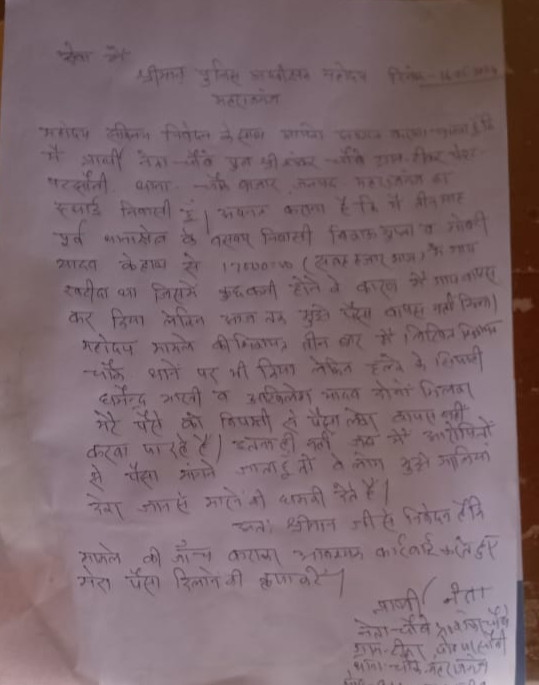 सेवा में
श्रीमान पुलिस अधीक्षक महोदय दिनांक - 16.05
महराजगंज
महोदय सविनय निवेदन के साथ आपको अवगत कराना
मैं प्रार्थी नेता चौबे पुत्र श्री शंकर चौबे ग्राम-टीकर
थाना - चौक बाजार जनपद महाराजगंज का
स्थाई निवासी हूँ। अवगत कराना है कि मैं तीन माह
पूर्व के निवासी विशाल गुप्ता व
यादव के हाथ से 17000=00 (सत्रह हजार) में गाय
खरीदा था जिसमें कुछ कमी होने के कारण मैं गाय वापस
कर दिया लेकिन आज तक मुझे पैसा वापस नहीं किया।
महोदय मामले की शिकायत तीन बार मैं लिखित
चौक थाने पर भी दिया लेकिन हल्के के सिपाही
धर्मेन्द्र व अखिलेश यादव दोनों मिलकर
मेरे पैसे को विपक्षी से पैसा लेकर वापस नहीं
करवा पा रहे हैं। इतना ही नहीं जब मैं आरोपियों
से पैसा मांगने जाता हूँ तो वे लोग मुझे गालियां
देकर जान से मारने की धमकी देते हैं।
अतः श्रीमान जी से निवेदन है कि
मामले की जाँच कराकर आवश्यक कार्रवाई करते हुए
मेरा पैसा दिलाने की कृपा करें।
प्रार्थी / नेता
नेता चौबे चौबे
ग्राम-टीकर
थाना-चौक महराजगंज